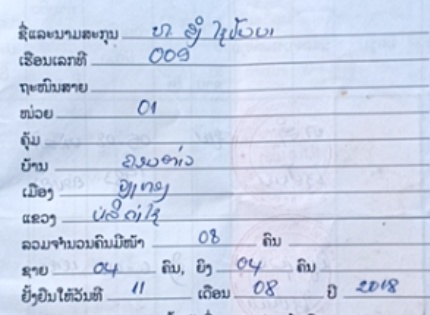 ຊື່ແລະນາມສະກຸນ ທ. ສີ
ເຮືອນເລກທີ 009
ຖະໜົນສາຍ
ໜ່ວຍ 01
ຄຸ້ມ
ບ້ານ
ເມືອງ
ແຂວງ ບໍລິຄຳໄຊ
ລວມຈຳນວນຄົນມີໜ້າ 08 ຄົນ
ຊາຍ 04 ຄົນ, ຍິງ 04 ຄົນ
ຢັ້ງຢືນໃຫ້ວັນທີ 11 ເດືອນ 08 ປີ 2018